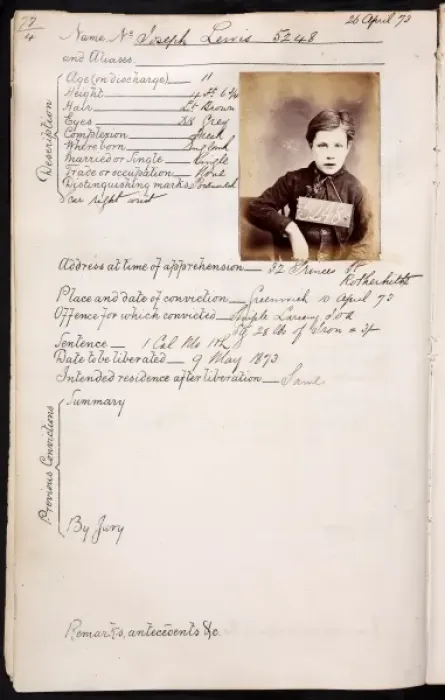 77
4
26 April 73
Name No Joseph Lewis 5248
and Aliases
Description
Age (on discharge) 11
Height 4 ft 6 3/4
Hair Lt Brown
Eyes Grey
Complexion Fresh
Where born England
Married or Single Single
Trade or occupation None
Distinguishing marks
Scar right wrist
5248
Address at time of apprehension 32 Princes St
Rotherhithe
Place and date of conviction Greenwich 10 April 73
Offence for which convicted Simple Larceny
28 lbs of Iron
Sentence 1 Cal Mo
Date to be liberated 9 May 1873
Intended residence after liberation Same
Previous Convictions
Summary
By Jury
Remarks, antecedents &c.